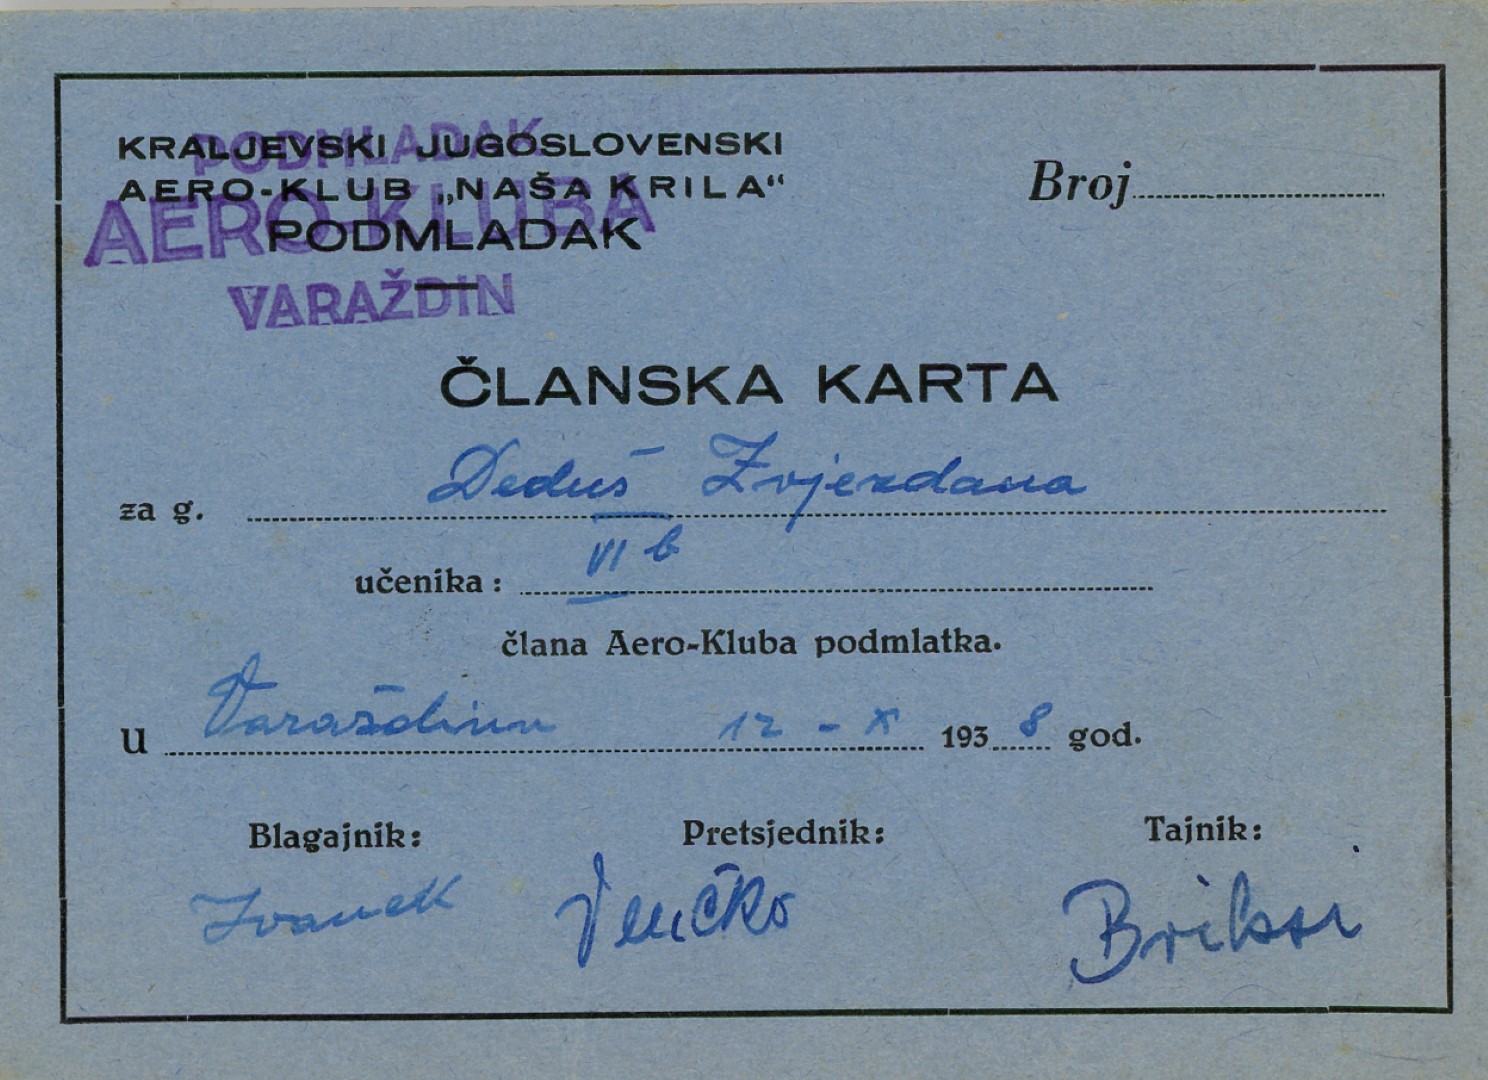 KRALJEVSKI JUGOSLOVENSKI
AERO-KLUB „NAŠA KRILA“
PODMLADAK
PODMLADAK
AERO-KLUBA
VARAŽDIN
Broj
ČLANSKA KARTA
za g. Deduš Zvjezdana
učenika: VI b
člana Aero-Kluba podmlatka.
u Varaždinu 12 - X 1938 god.
Blagajnik: Pretsjednik: Tajnik:
Ivanek Venčko